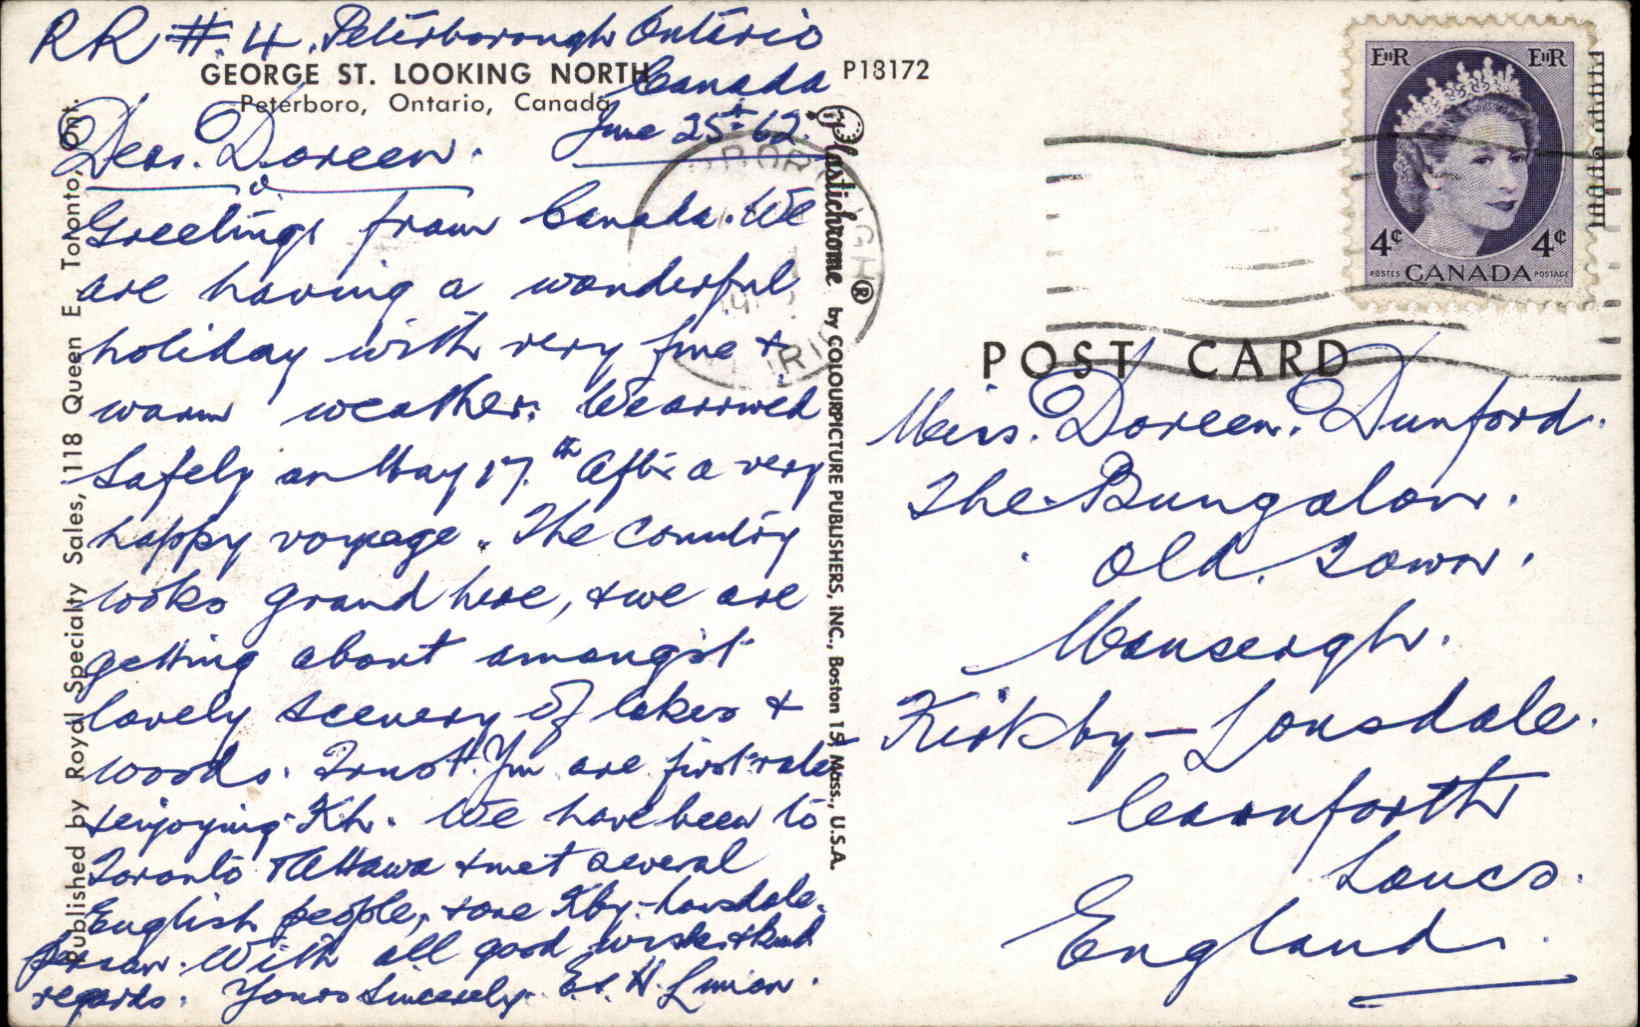 RR #. 4. Peterborough Ontario
Canada
June 25th 62.
GEORGE ST. LOOKING NORTH
Peterboro, Ontario, Canada
P18172
Dear. Doreen.
Greetings from Canada. We
are having a wonderful
holiday with very fine +
warm weather. We arrived
Safely on May 17.th After a very
happy voyage. The Country
looks grand here, + we are
getting about amongst
lovely scenery of lakes +
woods. Trust. You are first rate
+ enjoying Kh. We have been to
Toronto + Ottawa + met several
English people, + one Kby-Lonsdale.
person. With all good wishes + kind
regards. Yours Sincerely. H.
Published by Royal Specialty Sales, 118 Queen E. Toronto, Ont.
Plastichrome ® by COLOURPICTURE PUBLISHERS, INC., Boston 15, Mass., U.S.A.
EIIR EIIR
4¢ 4¢
POSTES CANADA POSTAGE
POST CARD
Miss. Doreen. Dunford.
The Bungalow.
Old. Town.
Mansergh.
Kirkby-Lonsdale.
Carnforth
Lancs.
England.